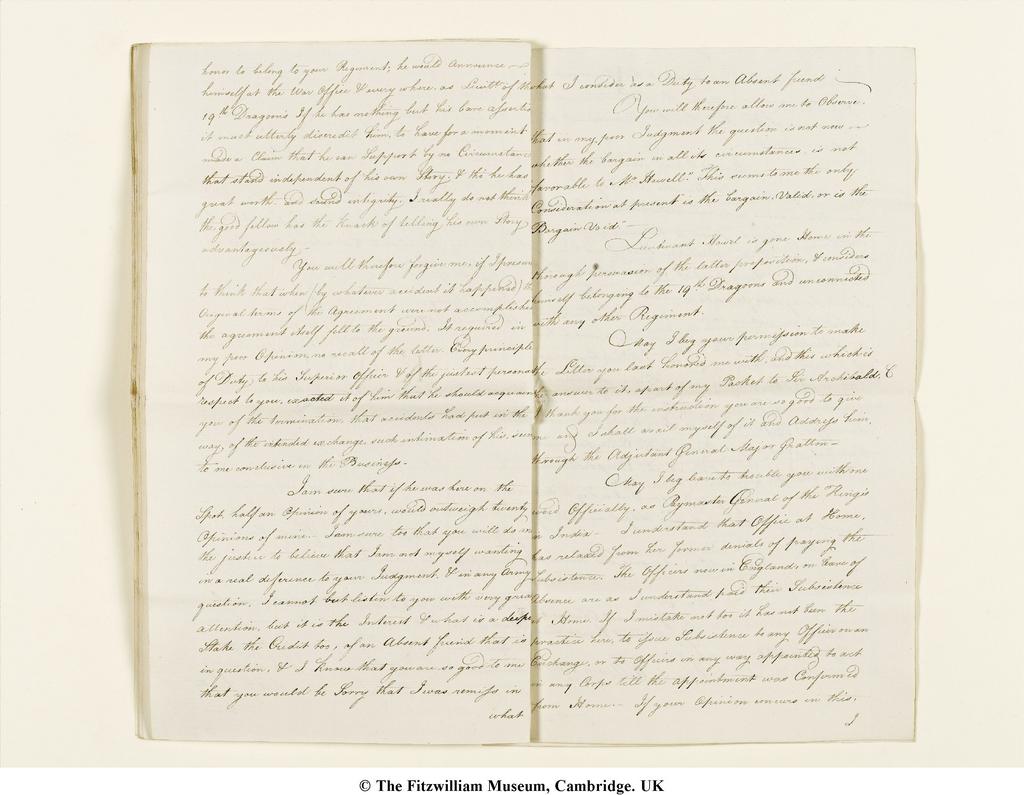 honor to belong to your Regiment; he would Announce
himself at the War Office & every where, as Lieutt. of the
19th. Dragoons If he has nothing but his bare assertion
it must utterly discredit him, to have for a moment
made a Claim that he can Support by no Circumstance
that stand independent of his own Story; & tho' he has
great worth and sound integrity, I really do not think
the good fellow has the Knack of telling his own Story
advantageously.
You will therefore forgive me, if I presume
to think that when (by whatever accident it happened) the
Original terms of the Agreement were not accomplished
the agreement itself fell to the ground. It required in
my poor Opinion, no recall of the letter. Every principle
of Duty, to his Superior Officer & of the justest personal
respect to you, exacted it of him that he should acquaint
you of the termination, that accidents had put in the
way, of the intended exchange, such intimation of his, seems
to me conclusive in the Business.
I am sure that if he was here on the
Spot, half an Opinion of yours, would outweigh twenty
Opinions of mine. I am sure too that you will do me
the justice to believe that I am not myself wanting
in a real deference to your Judgment, & in any Army
question, I cannot but listen to you with very great
attention, but it is the Interest & what is a deeper
Stake the Credit too, of an Absent friend that is
in question, & I know that you are so good to me
that you would be Sorry that I was remiss in
what
what I consider as a Duty to an Absent friend
You will therefore allow me to Observe,
that in my poor Judgment the question is not now
whether the bargain in all its circumstances, is not
favorable to Mr. Howell. This seems to me the only
Consideration at present is the bargain Valid, or is the
Bargain Void
Lieutenant Howel is gone Home in the
thorough persuasion of the latter proposition, & considers
himself belonging to the 19th. Dragoons and unconnected
with any other Regiment.
May I beg your permission to make
the Letter you last honored me with, and this which is
the answer to it, a part of my Packet to Sir Archibald. C
I thank you for the instruction you are so good to give
me and I shall avail myself of it and Address him,
through the Adjutant General Major Gratton
May I beg leave to trouble you with one
word Officially, as Paymaster General of the King's
in India. I understand that Office at Home,
has relaxed from her former denials of paying the
Subsistence. The Officers now in England, on leave of
Absence are as I understand paid their Subsistence
at Home. If I mistake not too it has not been the
practice here, to issue Subsistence to any Officer on an
Exchange, or to Officers in any way appointed to act
in any Corps till the appointment was Confirmed
from Home. If your Opinion concurs in this,
I
© The Fitzwilliam Museum, Cambridge. UK